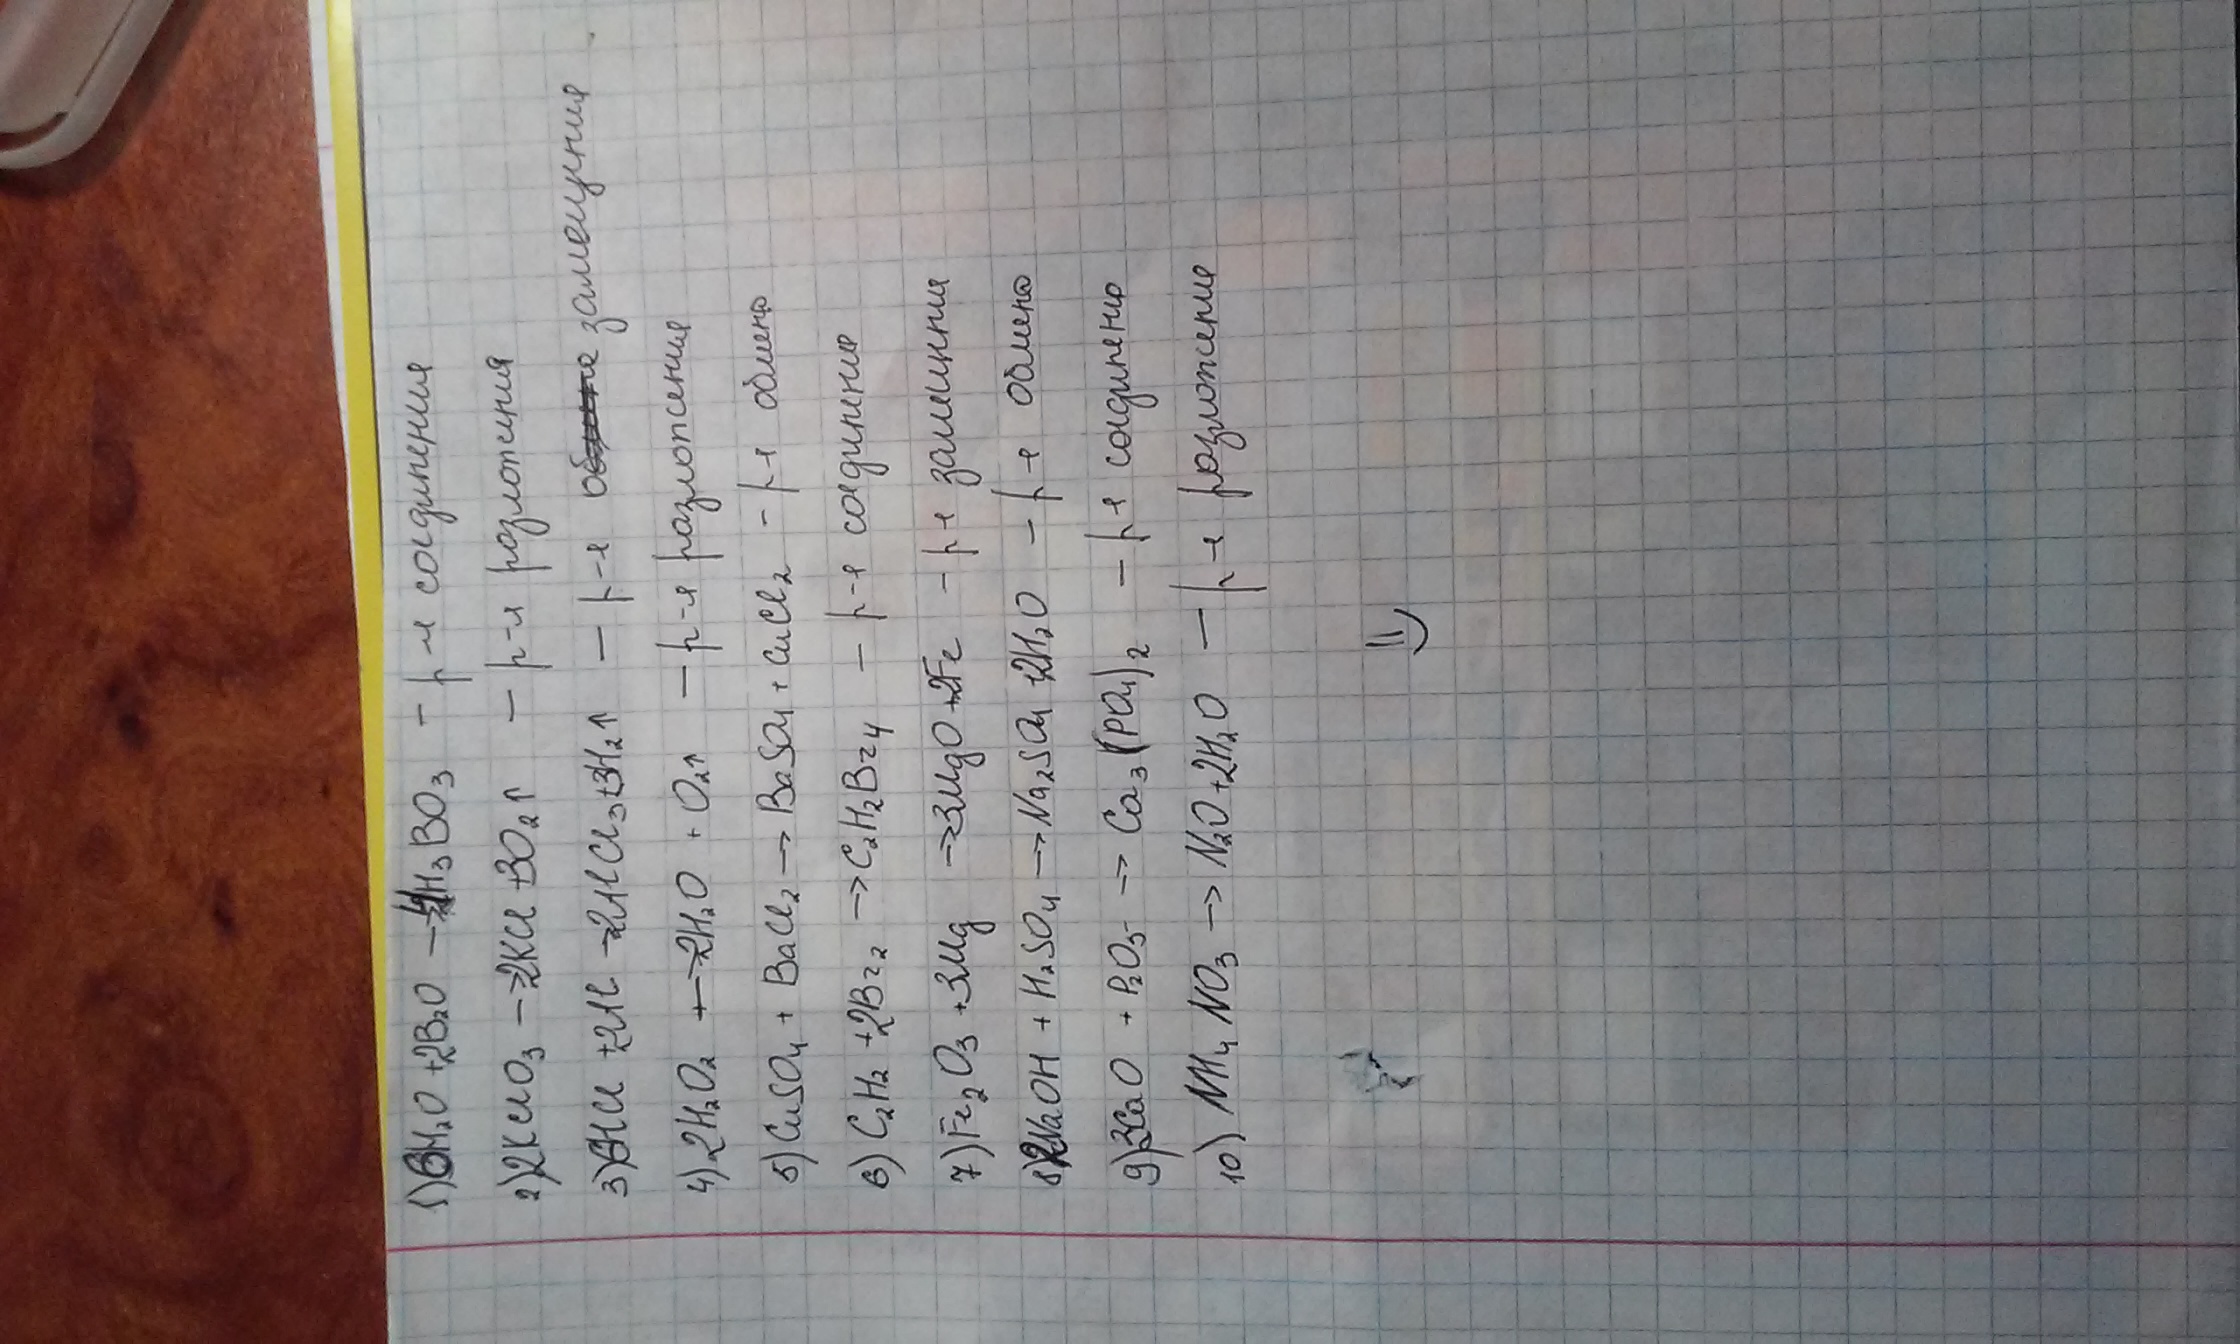 1) 6H₂O + 2B₂O → 4H₃BO₃ - р-я соединения
2) 2KClO₃ → 2KCl + BO₂↑ - р-я разложения
3) 6HCl + 2Al → 2AlCl₃ + 3H₂↑ - р-я замещения
4) 2H₂O₂ → 2H₂O + O₂↑ - р-я разложения
5) CuSO₄ + BaCl₂ → BaSO₄ + CuCl₂ - р-я обмена
6) C₂H₂ + 2Br₂ → C₂H₂Br₄ - р-я соединения
7) Fe₂O₃ + 3Mg → 3MgO + 2Fe - р-я замещения
8) 2NaOH + H₂SO₄ → Na₂SO₄ + 2H₂O - р-я обмена
9) 3CaO + P₂O₅ → Ca₃(PO₄)₂ - р-я соединено
10) NH₄NO₃ → N₂O + 2H₂O - р-я разложение
=)